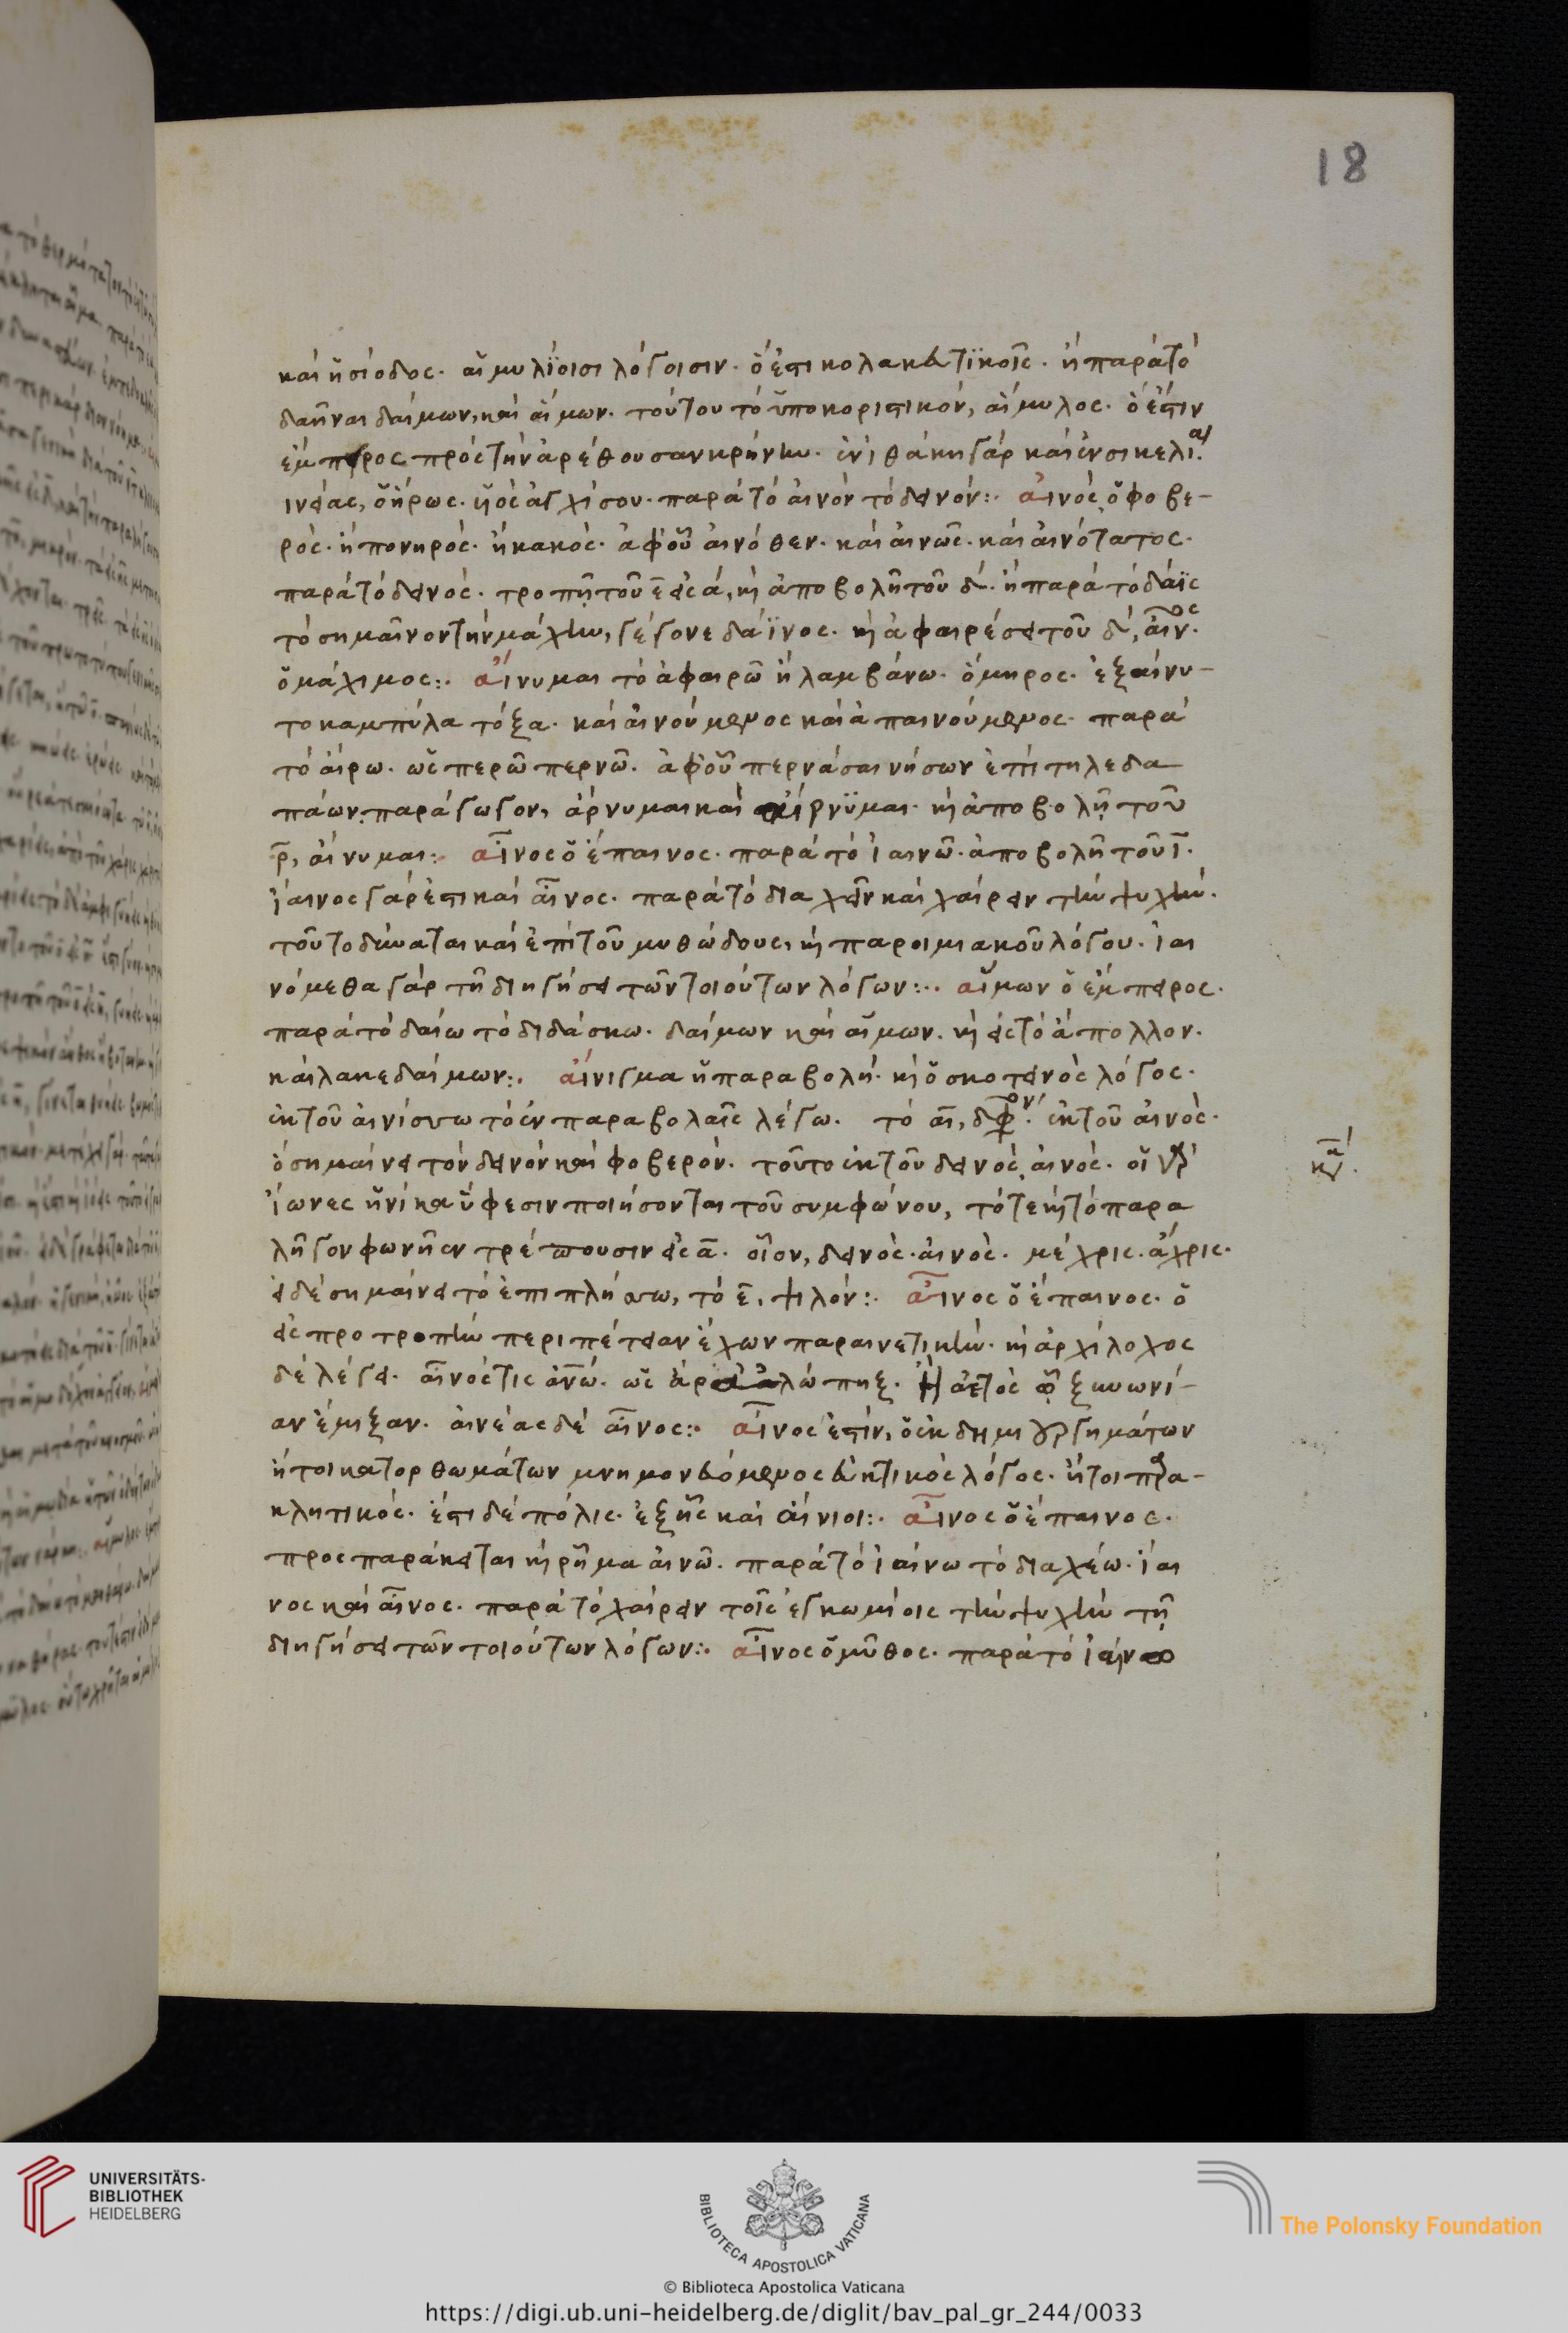 18
καὶ ἡσίοδος. αἱμυλίοισι λόγοισιν. ὅ ἐστι κολακευτικοῖς. ἢ παρὰ τὸ
δαῆναι δαίμων, καὶ αἵμων. τούτου τὸ ὑποκοριστικόν, αἱμυλος. ὅ ἐστιν
πρὸς τὴν ἀρέθουσαν κρήνην. ἐν ἰθάκη γὰρ καὶ ἐν σικελία.
ὁ ἥρως. ὁ ἀγχίσου. παρὰ τὸ αἰνὸν τὸ δεινόν:. αἰνὸς, ὁ φοβε-
ρὸς. ἢ πονηρὸς. ἢ κακὸς. ἀφ' οὗ αἰνόθεν. καὶ αἰνῶς. καὶ αἰνότατος.
παρὰ τὸ δεινὸς. τροπῆ τοῦ ε εἰς α, καὶ ἀποβολῆ τοῦ δ. ἢ παρὰ τὸ δάϊς
τὸ σημαῖνον τὴν μάχην, γέγονε δάϊνος. καὶ ἀφαιρέσει τοῦ δ, αἶνος.
ὁ μάχιμος:. αἴνυμαι τὸ ἀφαιρῶ ἢ λαμβάνω. ὅμηρος. ἐξαίνυ-
το καμπύλα τόξα. καὶ αἰνούμενος καὶ ἀπαινούμενος. παρὰ
τὸ αἴρω. ὡς περῶ περνῶ. ἀφ' οὗ περνάσαι νήσων ἐπι τηλεδα
πάων. παράγωγον, ἄρνυμαι καὶ αἴρνϋμαι. καὶ ἀποβολῆ τοῦ
ρ, αἴνυμαι:. αἶνος ὁ ἔπαινος. παρὰ τὸ ἰαινῶ. ἀποβολῆ τοῦ ι.
ἴαινος γάρ ἐστι καὶ αἶνος. παρὰ τὸ διαχεῖν καὶ χαίρειν τὴν ψυχήν.
τοῦτο δύναται καὶ ἐπὶ τοῦ μυθώδους, καὶ παροιμιακοῦ λόγου. ἰαι
νόμεθα γὰρ τῆ διηγήσει τῶν τοιούτων λόγων:. αἵμων ὁ ἔμπειρος.
παρὰ τὸ δαίω τὸ διδάσκω. δαίμων καὶ αἵμων. καὶ εἰς τὸ ἄπολλον.
καὶ λακεδαίμων:. αἴνιγμα ἡ παραβολή. καὶ ὁ σκοτεινὸς λόγος.
ἐκ τοῦ αἰνίσσω τὸ ἐν παραβολαῖς λέγω. τὸ αι, δφον. ἐκ τοῦ αἰνὸς.
ὁ σημαίνει τὸν δεινὸν καὶ φοβερόν. τοῦτο ἐκ τοῦ δεινὸς, αἰνὸς. οἱ γὰρ
ἴωνες ἡνίκα ὕφεσιν ποιήσονται τοῦ συμφώνου, τότε καὶ τὸ παρα
λῆγον φωνῆεν τρέπουσιν εἰς α. οἷον, δεινὸς. αἰνὸς. μέχρις. ἄχρις.
εἰ δὲ σημαίνει τὸ ἐπιπλήσσω, τὸ ε, ψιλόν:. αἶνος ὁ ἔπαινος. ὁ
εἰς προτροπὴν περιπέτειαν ἔχων παραινετικήν. καὶ ἀρχίλοχος
δὲ λέγει. αἶνός τις ανων. ὡς ἄρ ἀλώπηξ. ἠ αἰετὸς ξυνωνί-
αν ἔμιξαν. αἰνέας δὲ αἶνος:. αἶνος ἐστὶν, ὁ ἐκ δημιουργημάτων
ἤτοι κατορθωμάτων μνημονευόμενος εὐκτικὸς λόγος. ἤτοι παρα-
κλητικός. ἔστι δὲ πόλις. ἑξῆς καὶ αἴνιοι:. αἶνος ὁ ἔπαινος.
προςπαράκειται καὶ ρῆμα αἰνῶ. παρὰ τὸ ἰαίνω τὸ διαχέω. ἴαι
νος καὶ αἶνος. παρὰ τὸ χαίρειν τοῖς ἐγκωμίοις τὴν ψυχὴν τῆ
διηγήσει τῶν τοιούτων λόγων:. αἶνος ὁ μῦθος. παρὰ τὸ ἰαίνω
UNIVERSITÄTS-
BIBLIOTHEK
HEIDELBERG
BIBLIOTECA APOSTOLICA VATICANA
The Polonsky Foundation
© Biblioteca Apostolica Vaticana
https://digi.ub.uni-heidelberg.de/diglit/bav_pal_gr_244/0033